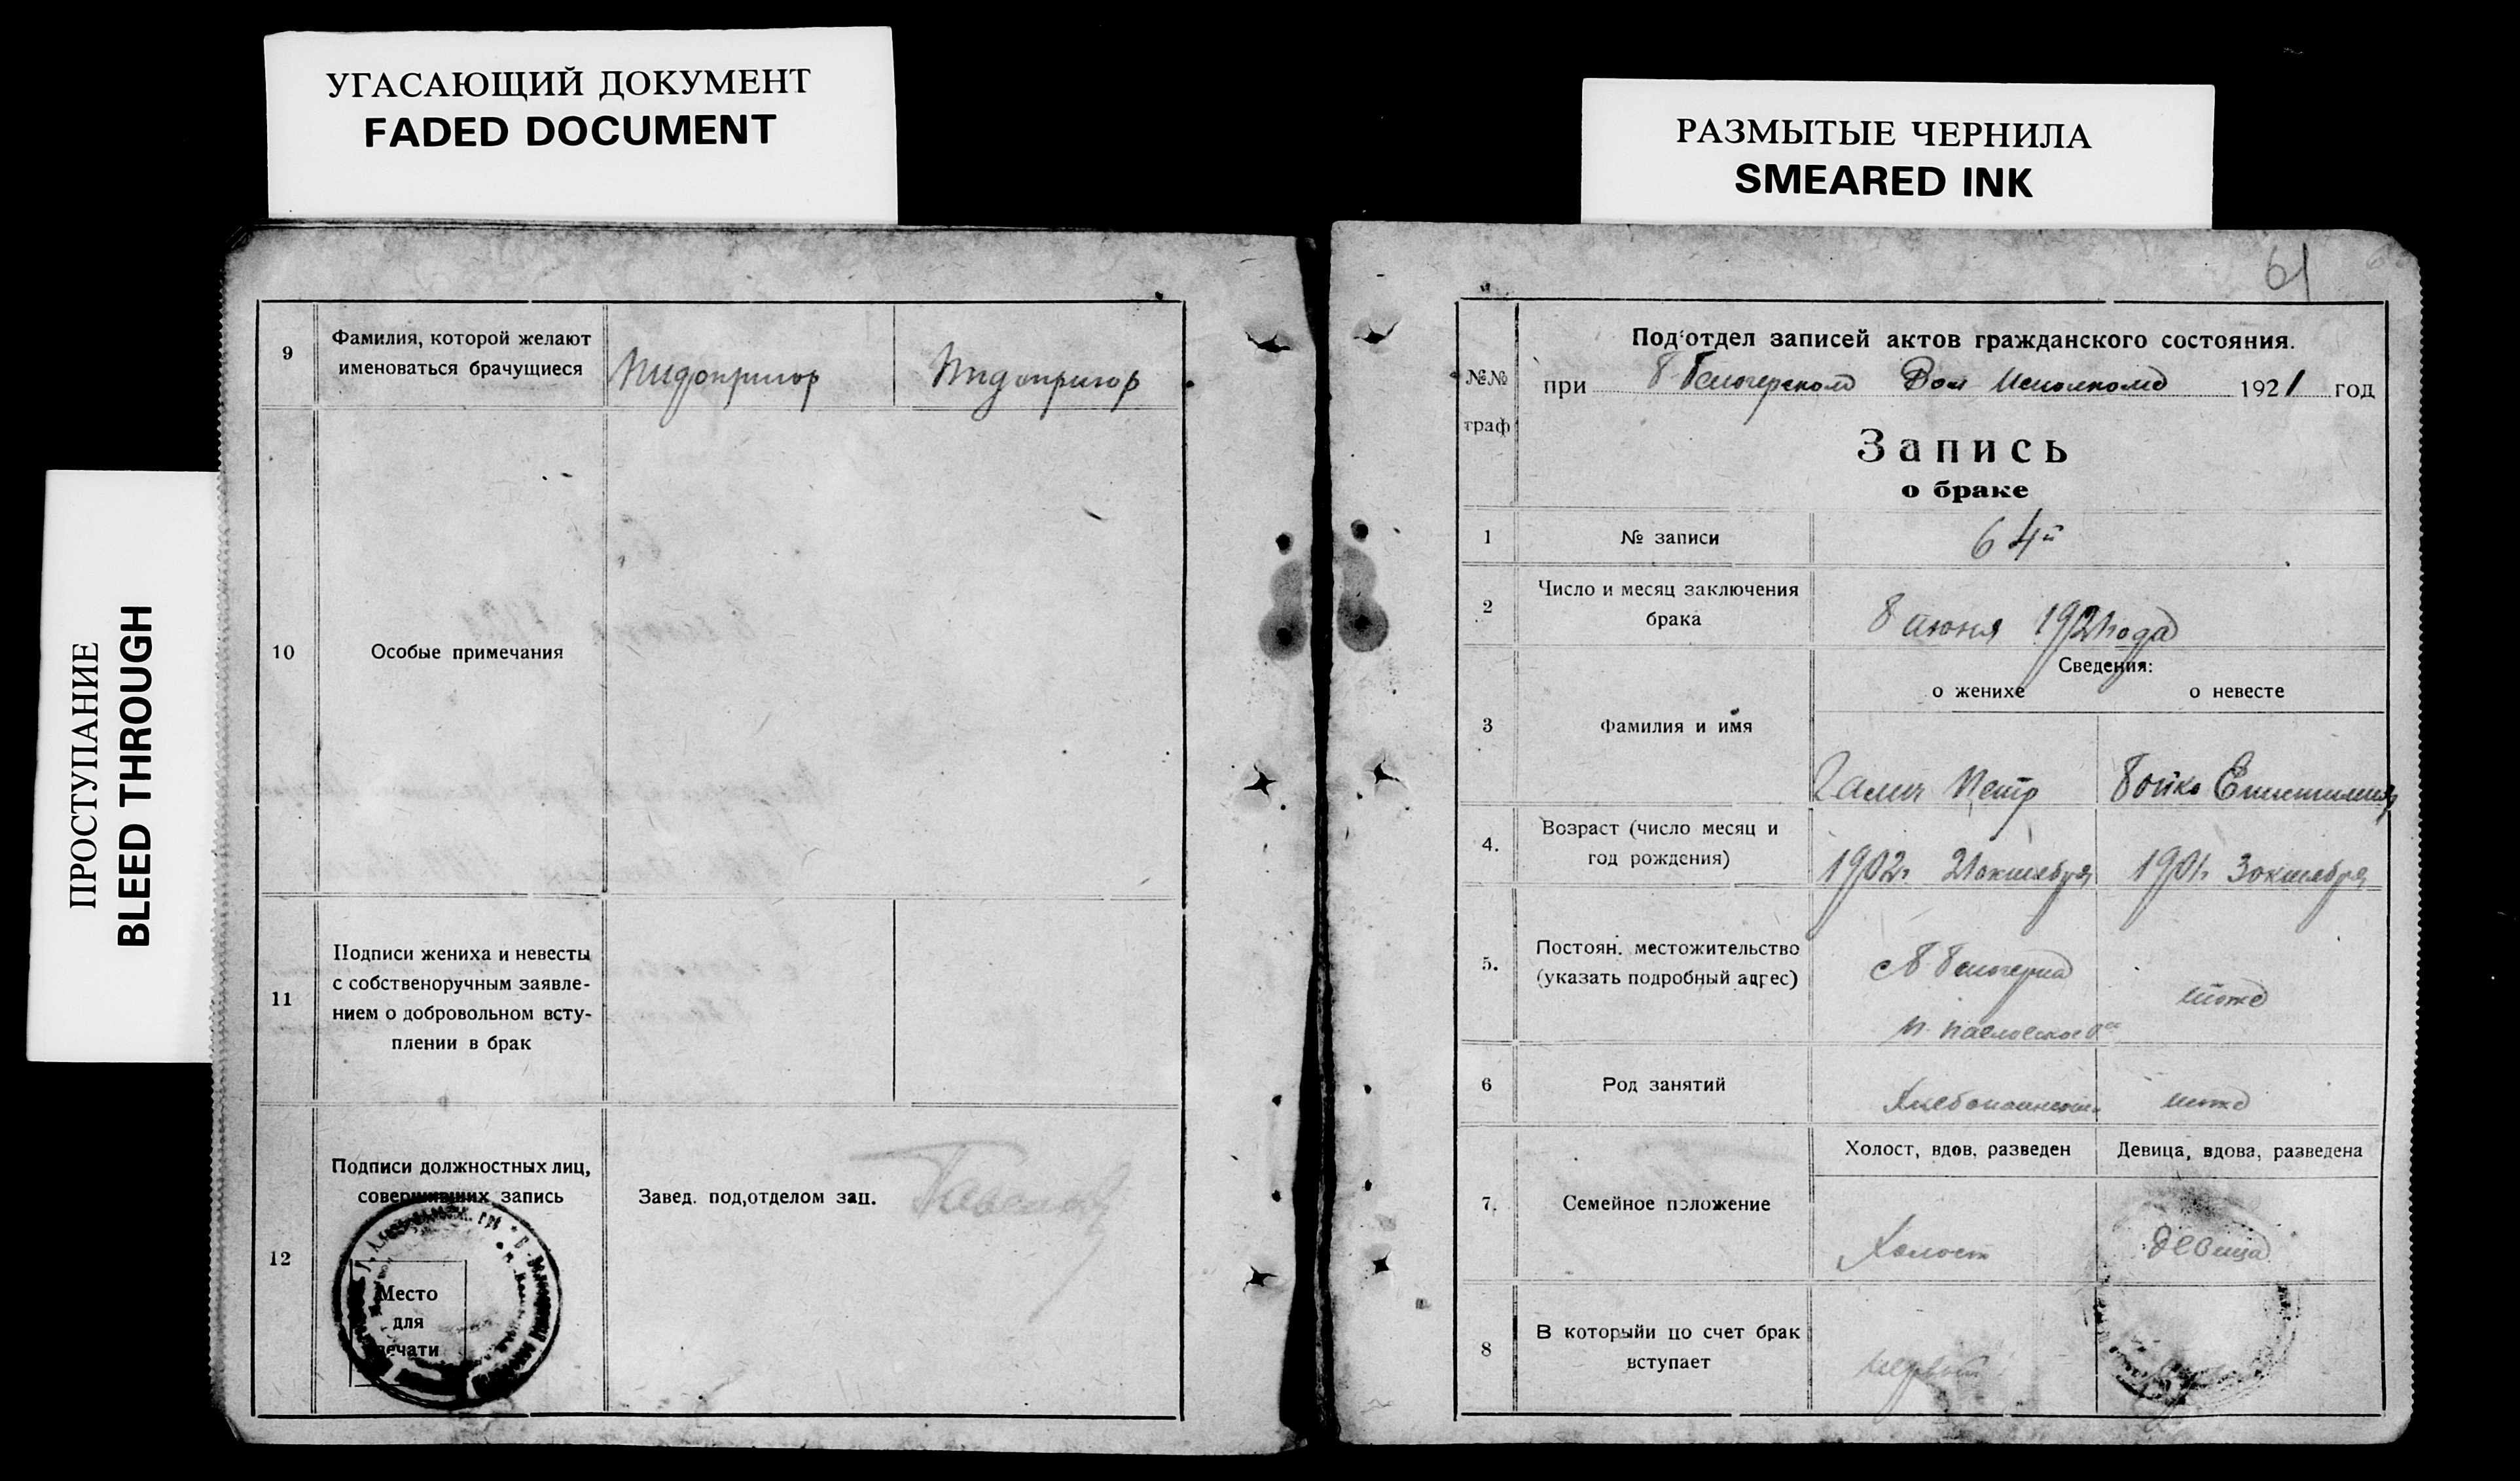 УГАСАЮЩИЙ ДОКУМЕНТ
FADED DOCUMENT
РАЗМЫТЫЕ ЧЕРНИЛА
SMEARED INK
ПРОСТУПАНИЕ
BLEED THROUGH
9
Фамилия, которой желают
именоваться брачущиеся
Пидопригор
Пидопригор
10
Особые примечания
11
Подписи жениха и невесты
с собственоручным заявле-
нием о добровольном всту-
плении в брак
12
Подписи должностных лиц,
совершивших запись
Завед. под,отделом зап.
Место
для
печати
61
№№
граф
Под‘отдел записей актов гражданского состояния.
при Вол Исполкоме 1921 год
Запись
о браке
1
№ записи
64й
2
Число и месяц заключения
брака
8 июня 1921 года
Сведения:
о женихе
о невесте
3
Фамилия и имя
Галич Петр
Бойко
4.
Возраст (число месяц и
год рождения)
1902г. 21 октября
1901г. 3 октября
5.
Постоян. местожительство
(указать подробный адрес)
тоже
6
Род занятий
тоже
7.
Семейное положение
Холост, вдов, разведен
Девица, вдова, разведена
Холост
девица
8
В которыйи по счет брак
вступает
первый